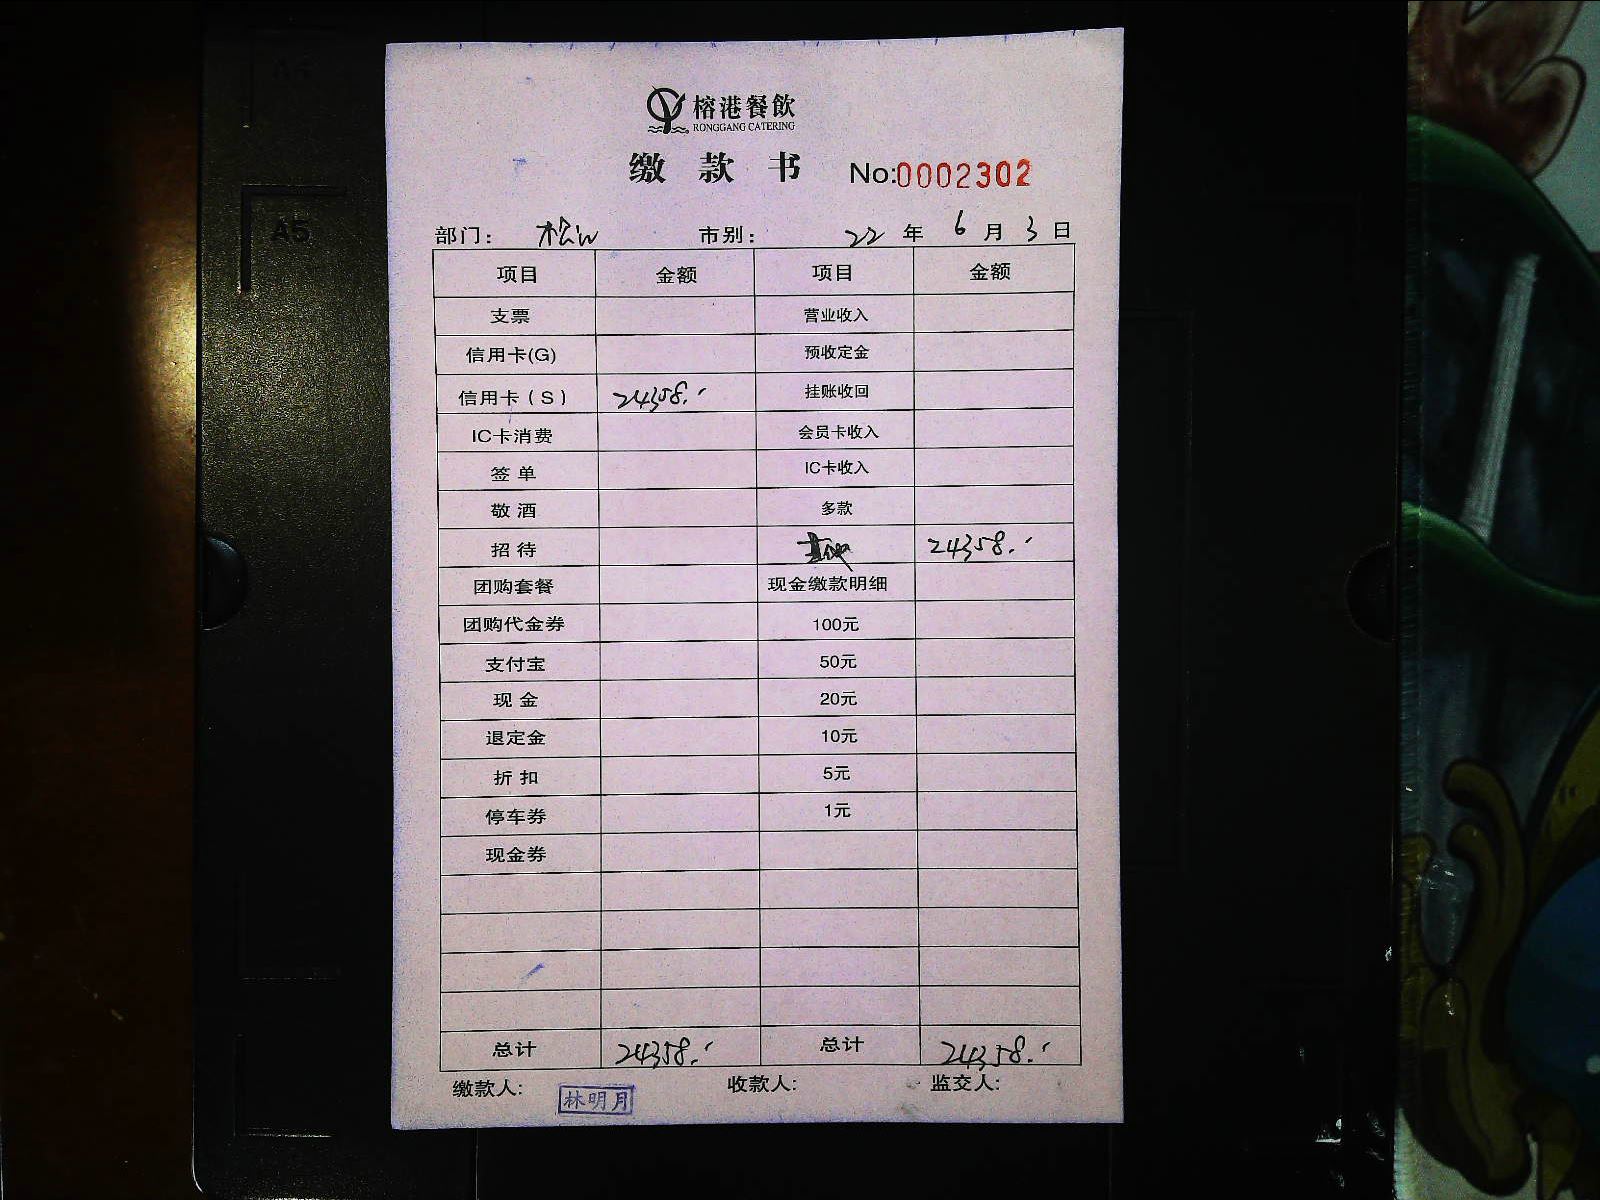 A4
A5
榕港餐飲
RONGGANG CATERING
缴 款 书 No:0002302
部门: 松山 市别: 22 年 6 月 3 日
项目 金额 项目 金额
支票 营业收入
信用卡(G) 预收定金
信用卡(S) 24358. 挂账收回
IC卡消费 会员卡收入
签单 IC卡收入
敬酒 多款
招待 24358.
团购套餐 现金缴款明细
团购代金券 100元
支付宝 50元
现金 20元
退定金 10元
折扣 5元
停车券 1元
现金券
总计 24358. 总计 24358.
缴款人: 林明月 收款人: 监交人: